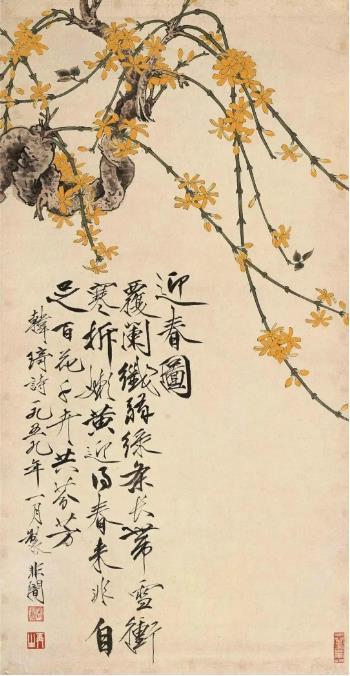 迎春圖
覆闌纖弱綠条长帶雪衝
寒折嫩黄迎得春来非自
足百花千卉共芬芳
韓琦詩一九五九年一月製非闇